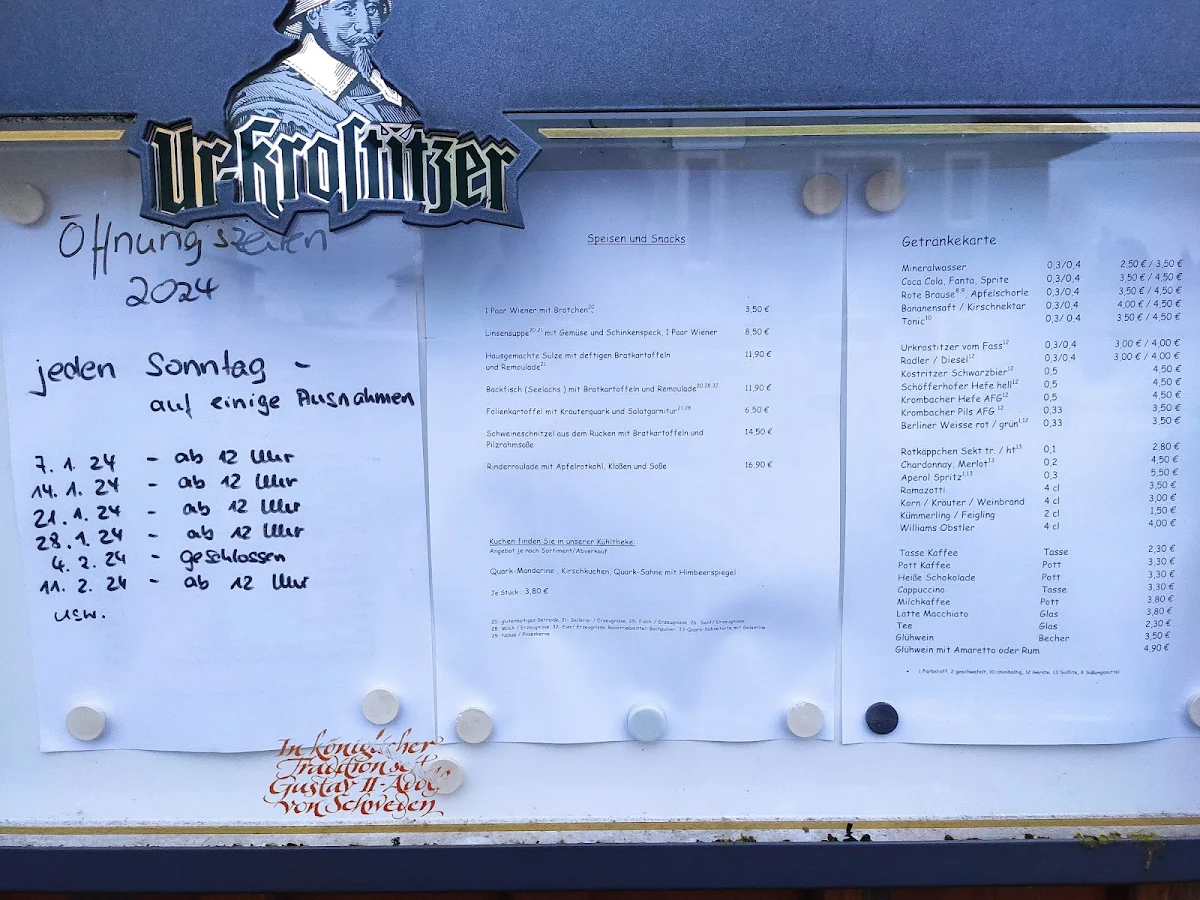 Ur-Krostitzer
Öffnungszeiten
2024
jeden Sonntag -
auf einige Ausnahmen
7. 1. 24 - ab 12 Uhr
14. 1. 24 - ab 12 Uhr
21. 1. 24 - ab 12 Uhr
28. 1. 24 - ab 12 Uhr
4. 2. 24 - geschlossen
11. 2. 24 - ab 12 Uhr
usw.
In königlicher
Tradition seit
Gustav II. Adolf
von Schweden
Speisen und Snacks
1 Paar Wiener mit Brötchen20, 3,50 €
Linsensuppe20,21 mit Gemüse und Schinkenspeck, 1 Paar Wiener 8,50 €
Hausgemachte Sülze mit deftigen Bratkartoffeln 11,90 €
und Remoulade21
Backfisch (Seelachs ) mit Bratkartoffeln und Remoulade 11,90 €
Folienkartoffel mit Kräuterquark und Salatgarnitur21,28 6,50 €
Schweineschnitzel aus dem Rücken mit Bratkartoffeln und 14,50 €
Pilzrahmsoße
Rinderroulade mit Apfelrotkohl, Klößen und Soße 16,90 €
Kuchen finden Sie in unserer Kühltheke:
Angebot je nach Sortiment/Abverkauf
Quark-Mandarine , Kirschkuchen, Quark-Sahne mit Himbeerspiegel
Je Stück: 3,80 €
20- glutenhaltiges Getreide, 21- Sellerie- / Erzeugnisse, 25- Fisch / Erzeugnisse, 26- Senf/ Erzeugnisse
28- Milch / Erzeugnisse 32- Eier/ Erzeugnisse,
29- Nüsse /
Getränkekarte
Mineralwasser 0,3/0,4 2,50 € / 3,50 €
Coca Cola, Fanta, Sprite 0,3/0,4 3,50 € / 4,50 €
Rote Brause8,9, Apfelschorle 0,3/0,4 3,50 € / 4,50 €
Bananensaft / Kirschnektar 0,3/0,4 4,00 € / 4,50 €
Tonic10 0,3/ 0,4 3,50 € / 4,50 €
Urkrostitzer vom Fass12 0,3/0,4 3,00 € / 4,00 €
Radler / Diesel12 0,3/0,4 3,00 € / 4,00 €
Köstritzer Schwarzbier12 0,5 4,50 €
Schöfferhofer Hefe hell12 0,5 4,50 €
Krombacher Hefe AFG12 0,5 4,50 €
Krombacher Pils AFG 12 0,33 3,50 €
Berliner Weisse rot / grün1,12 0,33 3,50 €
Rotkäppchen Sekt tr. / ht13 0,1 2,80 €
Chardonnay, Merlot13 0,2 4,50 €
Aperol Spritz1,13 0,3 5,50 €
Ramazotti 4 cl 3,50 €
Korn / Kräuter / Weinbrand 4 cl 3,00 €
Kümmerling / Feigling 2 cl 1,50 €
Williams Obstler 4 cl 4,00 €
Tasse Kaffee Tasse 2,30 €
Pott Kaffee Pott 3,30 €
Heiße Schokolade Pott 3,30 €
Cappuccino Tasse 3,30 €
Milchkaffee Pott 3,80 €
Latte Macchiato Glas 3,80 €
Tee Glas 2,30 €
Glühwein Becher 3,50 €
Glühwein mit Amaretto oder Rum 4,90 €
• 1 Farbstoff, 2 geschwefelt, 10 chininhaltig, 12 Gerste, 13 Sulfite, 9 Süßungsmittel